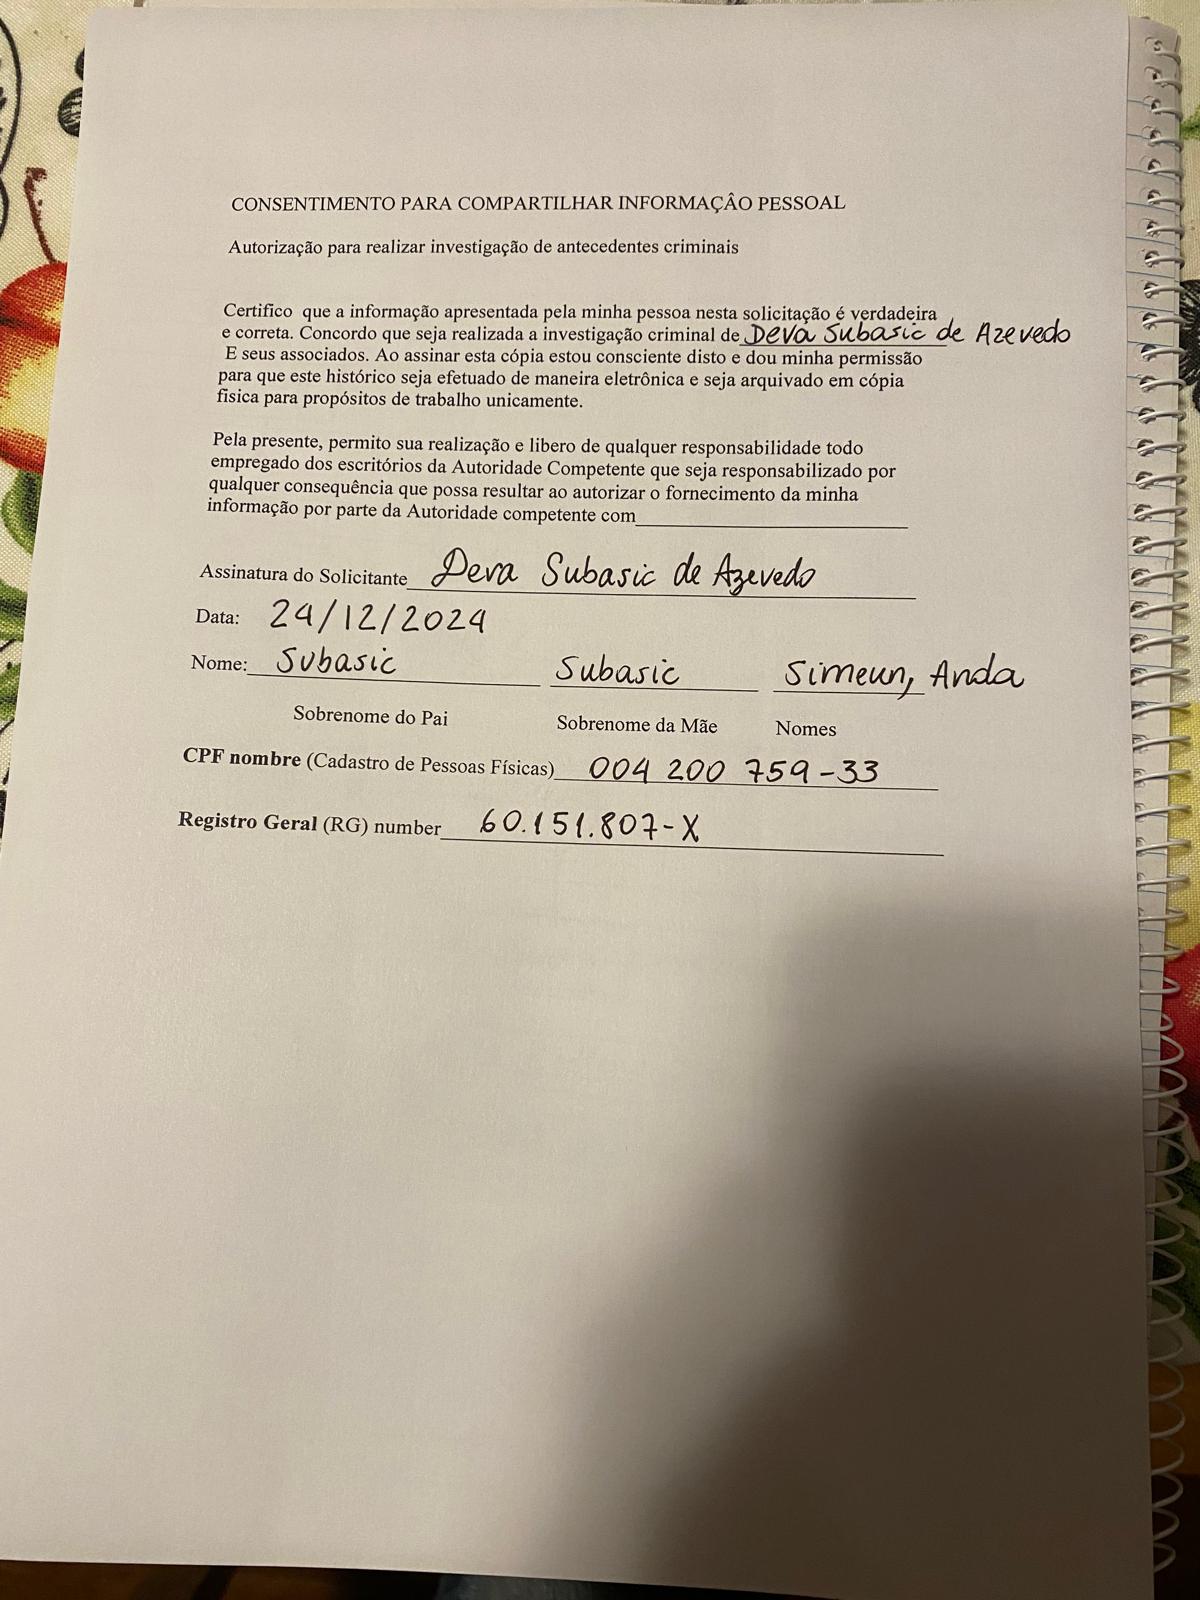 CONSENTIMENTO PARA COMPARTILHAR INFORMAÇÂO PESSOAL
Autorização para realizar investigação de antecedentes criminais
Certifico que a informação apresentada pela minha pessoa nesta solicitação é verdadeira
e correta. Concordo que seja realizada a investigação criminal de Deva Subasic de Azevedo
E seus associados. Ao assinar esta cópia estou consciente disto e dou minha permissão
para que este histórico seja efetuado de maneira eletrônica e seja arquivado em cópia
fisica para propósitos de trabalho unicamente.
Pela presente, permito sua realização e libero de qualquer responsabilidade todo
empregado dos escritórios da Autoridade Competente que seja responsabilizado por
qualquer consequência que possa resultar ao autorizar o fornecimento da minha
informação por parte da Autoridade competente com
Assinatura do Solicitante Deva Subasic de Azevedo
Data: 24/12/2024
Nome: Subasic Subasic Simeun, Anda
Sobrenome do Pai Sobrenome da Mãe Nomes
CPF nombre (Cadastro de Pessoas Físicas) 004 200 759-33
Registro Geral (RG) number 60.151.807-X